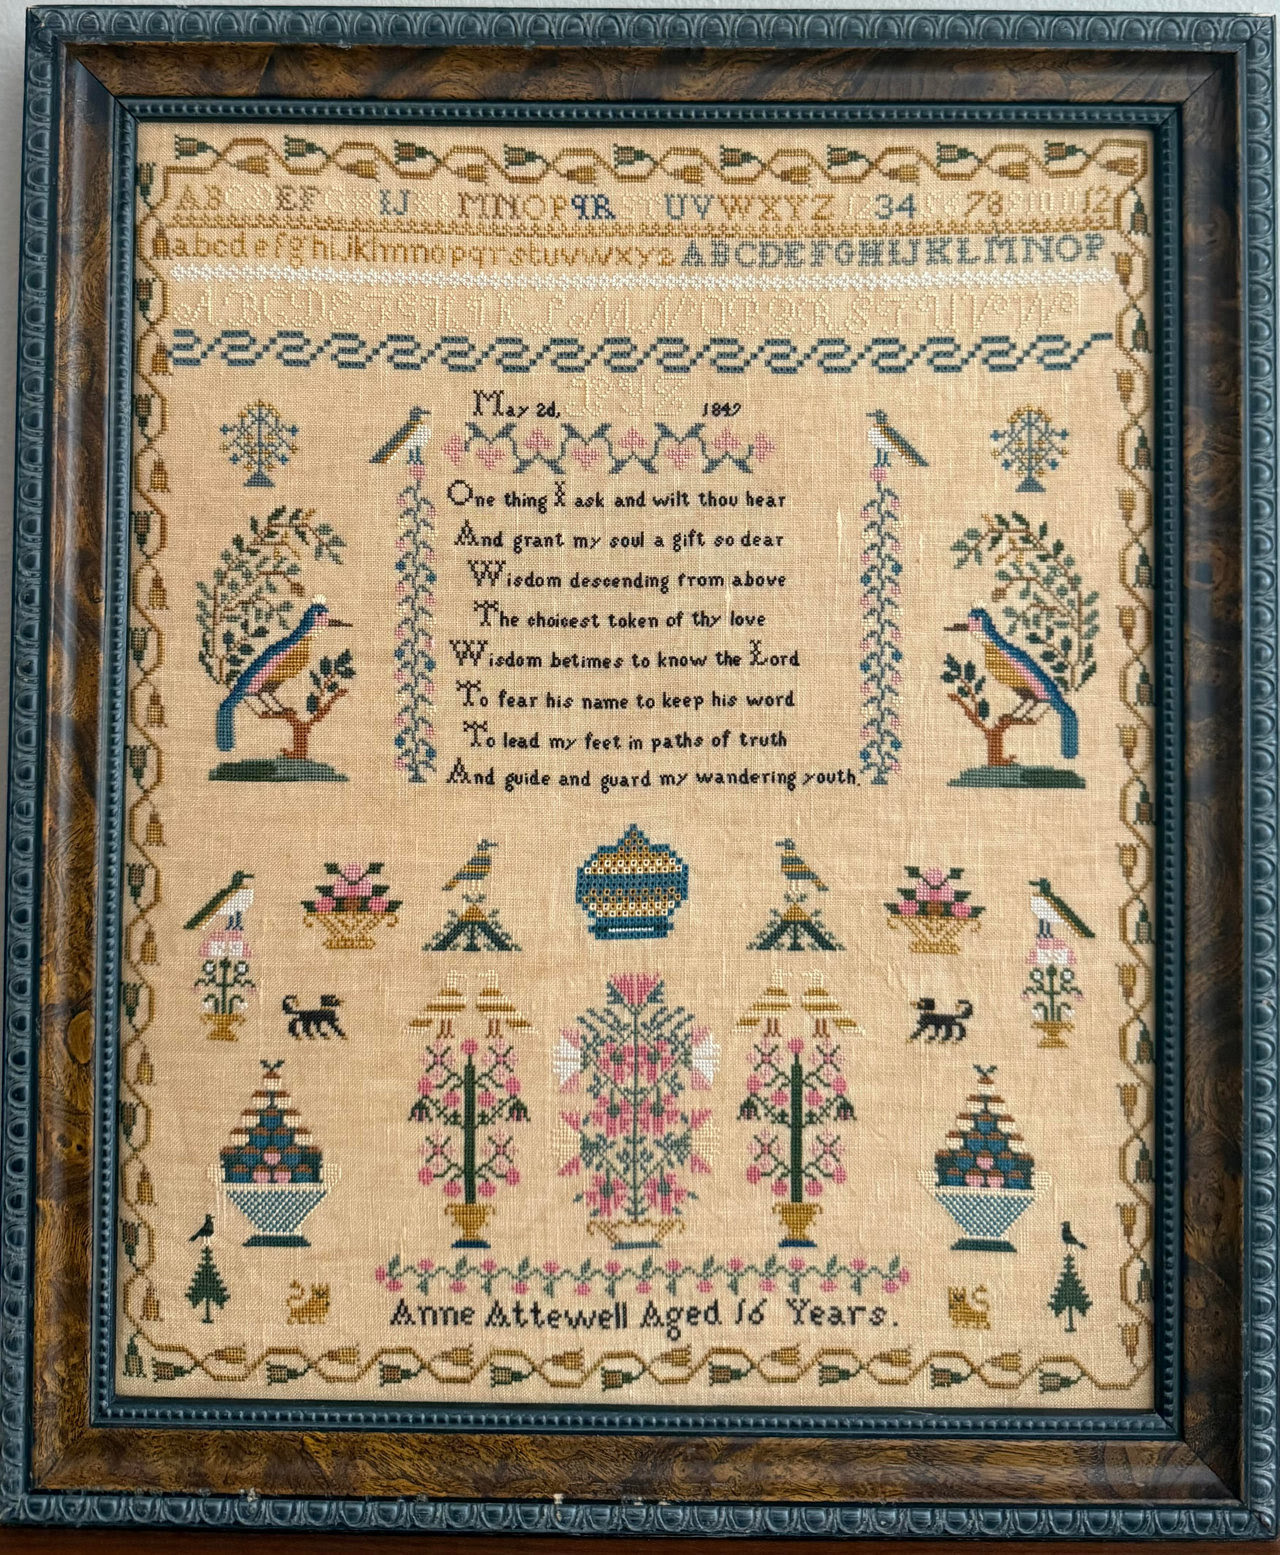 ABCDEFGHIJKLMNOPQRSTUVWXYZ 123456789101112
abcdefghijklmnopqrstuvwxyz ABCDEFGHIJKLMNOP
ABCDEFGHIJKLMNOPQRSTUVW
XYZ
May 2d, 1849
One thing I ask and wilt thou hear
And grant my soul a gift so dear
Wisdom descending from above
The choicest token of thy love
Wisdom betimes to know the Lord
To fear his name to keep his word
To lead my feet in paths of truth
And guide and guard my wandering youth.
Anne Attewell Aged 16 Years.